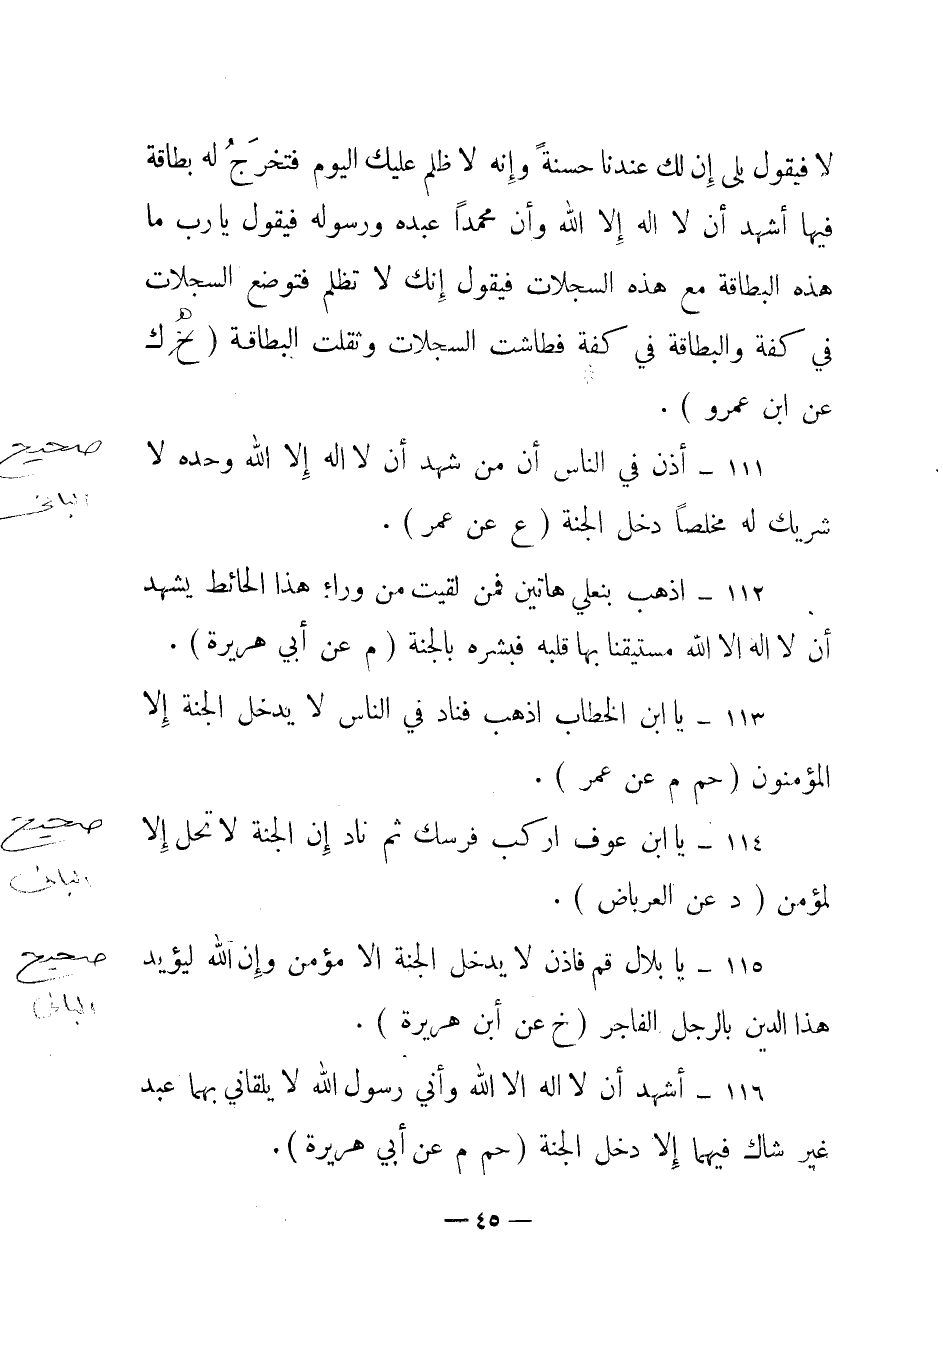 لا فيقول بلى إن لك عندنا حسنةً وإنه لا ظلم عليك اليوم فتخرَجُ له بطاقة
فيها أشهد أن لا اله إلا الله وأن محمداً عبده ورسوله فيقول يا رب ما
هذه البطاقة مع هذه السجلات فيقول إنك لا تظلم فتوضع السجلات
في كفة والبطاقة في كفة فطاشت السجلات وثقلت البطاقة ( ك
عن ابن عمرو ) .
١١١ – أذن في الناس أن من شهد أن لا اله إلا الله وحده لا
صحيح
شريك له مخلصاً دخل الجنة ( ع عن عمر ) .
الباني
١١٢ – اذهب بنعلي هاتين فمن لقيت من وراء هذا الحائط يشهد
أن لا اله الا الله مستيقنا بها قلبه فبشره بالجنة ( م عن أبي هريرة ) .
١١٣ – يا ابن الخطاب اذهب فناد في الناس لا يدخل الجنة إلا
المؤمنون ( حم م عن عمر ) .
١١٤ – يا ابن عوف اركب فرسك ثم ناد إن الجنة لا تحل إلا
صحيح
لمؤمن ( د عن العرباض ) .
الباني
١١٥ – يا بلال قم فاذن لا يدخل الجنة الا مؤمن وإن الله ليؤيد
صحيح
هذا الدين بالرجل الفاجر ( خ عن أبن هريرة ) .
الباني
١١٦ – أشهد أن لا اله الا الله وأني رسول الله لا يلقاني بهما عبد
غير شاك فيهما إلا دخل الجنة ( حم م عن أبي هريرة ) .
— ٤٥ —